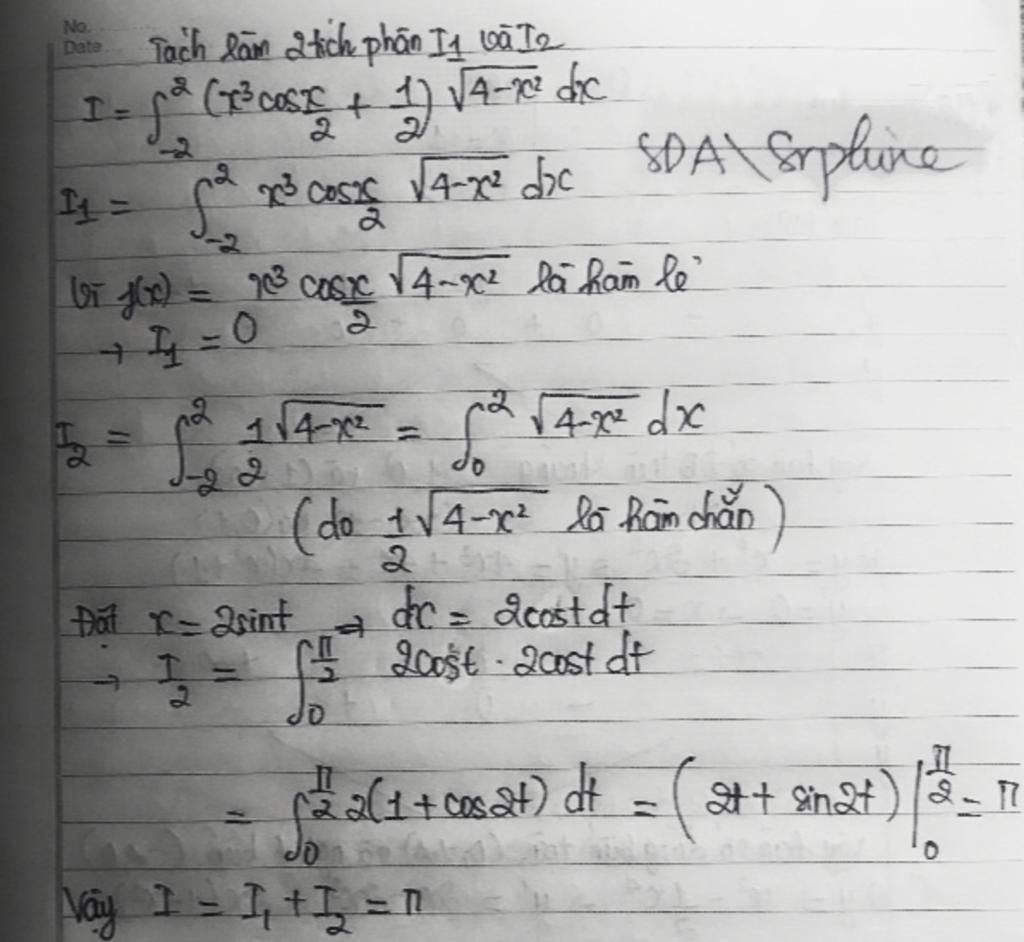 No.
Date
Tách làm 2 tích phân I1 và I2
I = ∫_{-2}^{2} (x³ cos x/2 + 1/2) √(4-x²) dx
SDA\Srphine
I1 = ∫_{-2}^{2} x³ cos x/2 √(4-x²) dx
Vì f(x) = x³ cos x/2 √(4-x²) là hàm lẻ
→ I1 = 0
I2 = ∫_{-2}^{2} 1/2 √(4-x²) = ∫_{0}^{2} √(4-x²) dx
(do 1/2 √(4-x²) là hàm chẵn)
Đặt x = 2sint → dx = 2cost dt
→ I2 = ∫_{0}^{π/2} 2cost · 2cost dt
= ∫_{0}^{π/2} 2(1 + cos2t) dt = (2t + sin2t) |_{0}^{π/2} = π
Vậy I = I1 + I2 = π